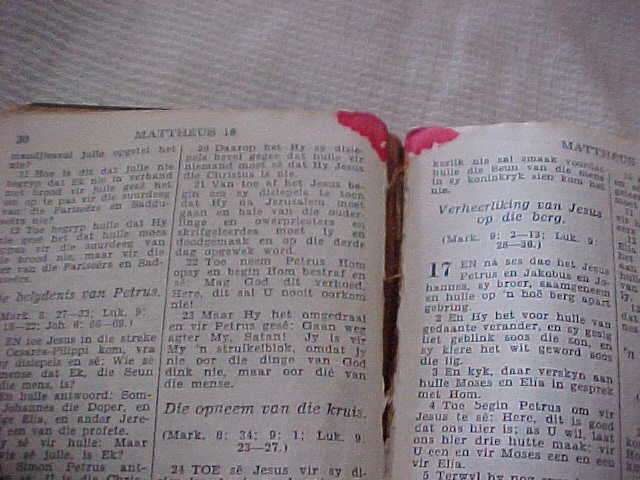 30
MATTHEUS 16
mandjievol julle opgetel het
nie?
11 Hoe is dit dat julle nie
begryp dat Ek nie in verband
met brood vir julle gesê het
om op te pas vir die suurdeeg
van die Fariseërs en Saddu-
seërs nie?
12 Toe begryp hulle dat Hy
nie gesê het dat hulle moes
vir die suurdeeg van
brood nie, maar vir die
van die Fariseërs en Sad-
ie belydenis van Petrus.
Mark. 8: 27—33; Luk. 9:
18—22; Joh. 6: 66—69.)
EN toe Jesus in die streke
Cesaréa-Filippi kom, vra
sy dissipels en sê: Wie sê
mense dat Ek, die Seun
die mens, is?
En hulle antwoord: Som-
Johannes die Doper, en
Elía, en ander Jere-
een van die profete.
Hy sê vir hulle: Maar
wie sê julle, is Ek?
Simon Petrus ant-
20 Daarop het Hy sy dissi-
pels bevel gegee dat hulle vir
niemand moet sê dat Hy Jesus
die Christus is nie.
21 Van toe af het Jesus be-
gin om sy dissipels te toon
dat Hy na Jerusalem moet
gaan en baie van die ouder-
linge en owerpriesters en
skrifgeleerdes moet ly en
doodgemaak en op die derde
dag opgewek word.
22 Toe neem Petrus Hom
opsy en begin Hom bestraf en
sê: Mag God dit verhoed,
Here, dit sal U nooit oorkom
nie!
23 Maar Hy het omgedraai
en vir Petrus gesê: Gaan weg
agter My, Satan! Jy is vir
My 'n struikelblok, omdat jy
nie oor die dinge van God
dink nie, maar oor dié van
die mense.
Die opneem van die kruis.
(Mark. 8: 34; 9: 1; Luk. 9:
23—27.)
24 TOE sê Jesus vir sy di-
MATTHEUS
kerlik nie sal smaak voordat
hulle die Seun van die mens
in sy koninkryk sien kom het
nie.
Verheerliking van Jesus
op die berg.
(Mark. 9: 2—13; Luk. 9:
28—36.)
17 EN ná ses dae het Jesus
Petrus en Jakobus en Jo-
hannes, sy broer, saamgeneem
en hulle op 'n hoë berg apart
gebring.
2 En Hy het voor hulle van
gedaante verander, en sy gesig
het geblink soos die son, en
sy klere het wit geword soos
die lig.
3 En kyk, daar verskyn aan
hulle Moses en Elía in gesprek
met Hom.
4 Toe begin Petrus om vir
Jesus te sê: Here, dit is goed
dat ons hier is; as U wil, laat
ons hier drie hutte maak; vir
U een en vir Moses een en een
vir Elía.
5 Terwyl hy nog